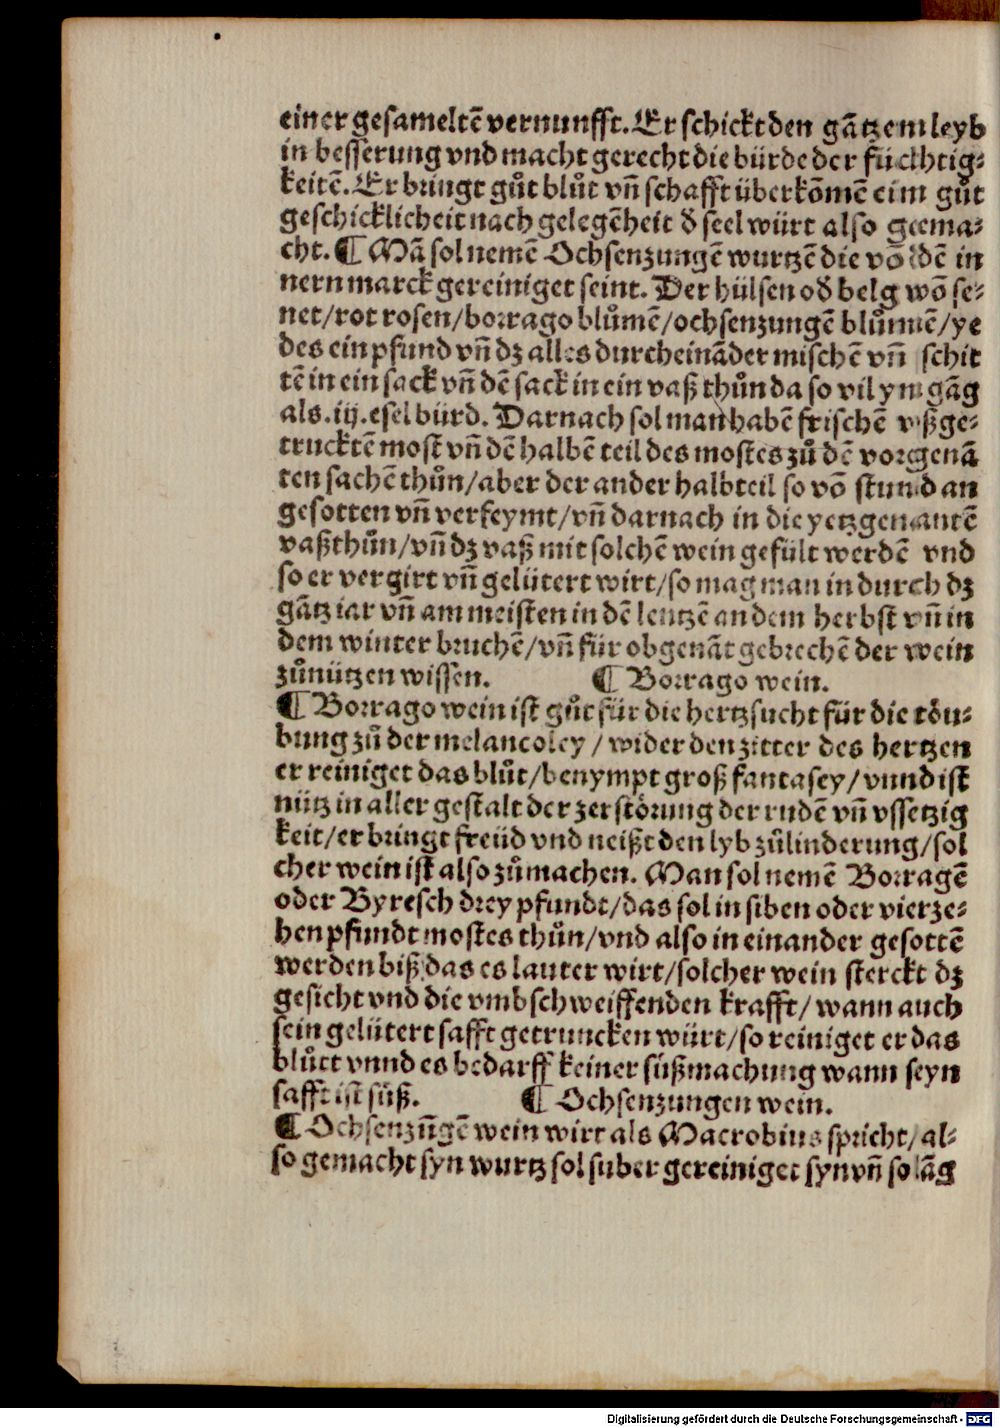 einer gesameltē vernunfft. Er schickt den gātzem leyb
in besserung vnd macht gerecht die bürde der füchtig⸗
keitē. Er bringt gůt blůt vñ schafft überkōmē eim gůt
geschicklicheit nach gelegēheit d seel würt also gema⸗
cht. ¶ Mā sol nemē Ochsenzungē wurtzē die vō dē in
nern marck gereiniget seint. Der hülsen od belg wō se⸗
net/rot rosen/borrago blůmē/ochsenzungē blůmē/ye
des ein pfund vñ dz alles durcheināder mischē vñ schit
tē in ein sack vñ dē sack in ein vaß thůn da so vil yn gāg
als .iij. esel bürd. Darnach sol man habē frischē vßge⸗
trucktē most vñ dē halbē teil des mostes zů dē vorgenā
ten sachē thůn/aber der ander halbteil so vō stund an
gesotten vñ verfeymt/vñ darnach in die yetzgenantē
vaß thůn/vñ dz vaß mit solchē wein gefült werdē vnd
so er vergirt vñ gelütert wirt/so mag man in durch dz
gātz iar vñ am meisten in dē lentzē an dem herbst vñ in
dem winter bruchē/vñ für obgenāt gebrechē der wein
zůnützen wissen. ¶ Borrago wein.
¶ Borrago wein ist gůt für die hertzsucht für die töu⸗
bung zů der melancoley / wider den zitter des hertzen
er reiniget das blůt/benympt groß fantasey/vnnd ist
nütz in aller gestalt der zerstörung der rudē vñ vssetzig
keit/er bringt freüd vnd neißt den lyb zůlinderung/sol
cher wein ist also zůmachen. Man sol nemē Borragē
oder Byresch drey pfundt/das sol in siben oder vierze⸗
hen pfundt mostes thůn/vnd also in einander gesottē
werden biß das es lauter wirt/solcher wein sterckt dz
gesicht vnd die vmbschweiffenden krafft/wann auch
sein gelütert safft getruncken würt/so reiniget er das
blůtt vnnd es bedarff keiner süßmachung wann seyn
safft ist süß. ¶ Ochsenzungen wein.
¶ Ochsenzūgē wein wirt als Macrobius spricht/al⸗
so gemacht syn wurtz sol suber gereiniget syn vñ so lāg
Digitalisierung gefördert durch die Deutsche Forschungsgemeinschaft - DFG